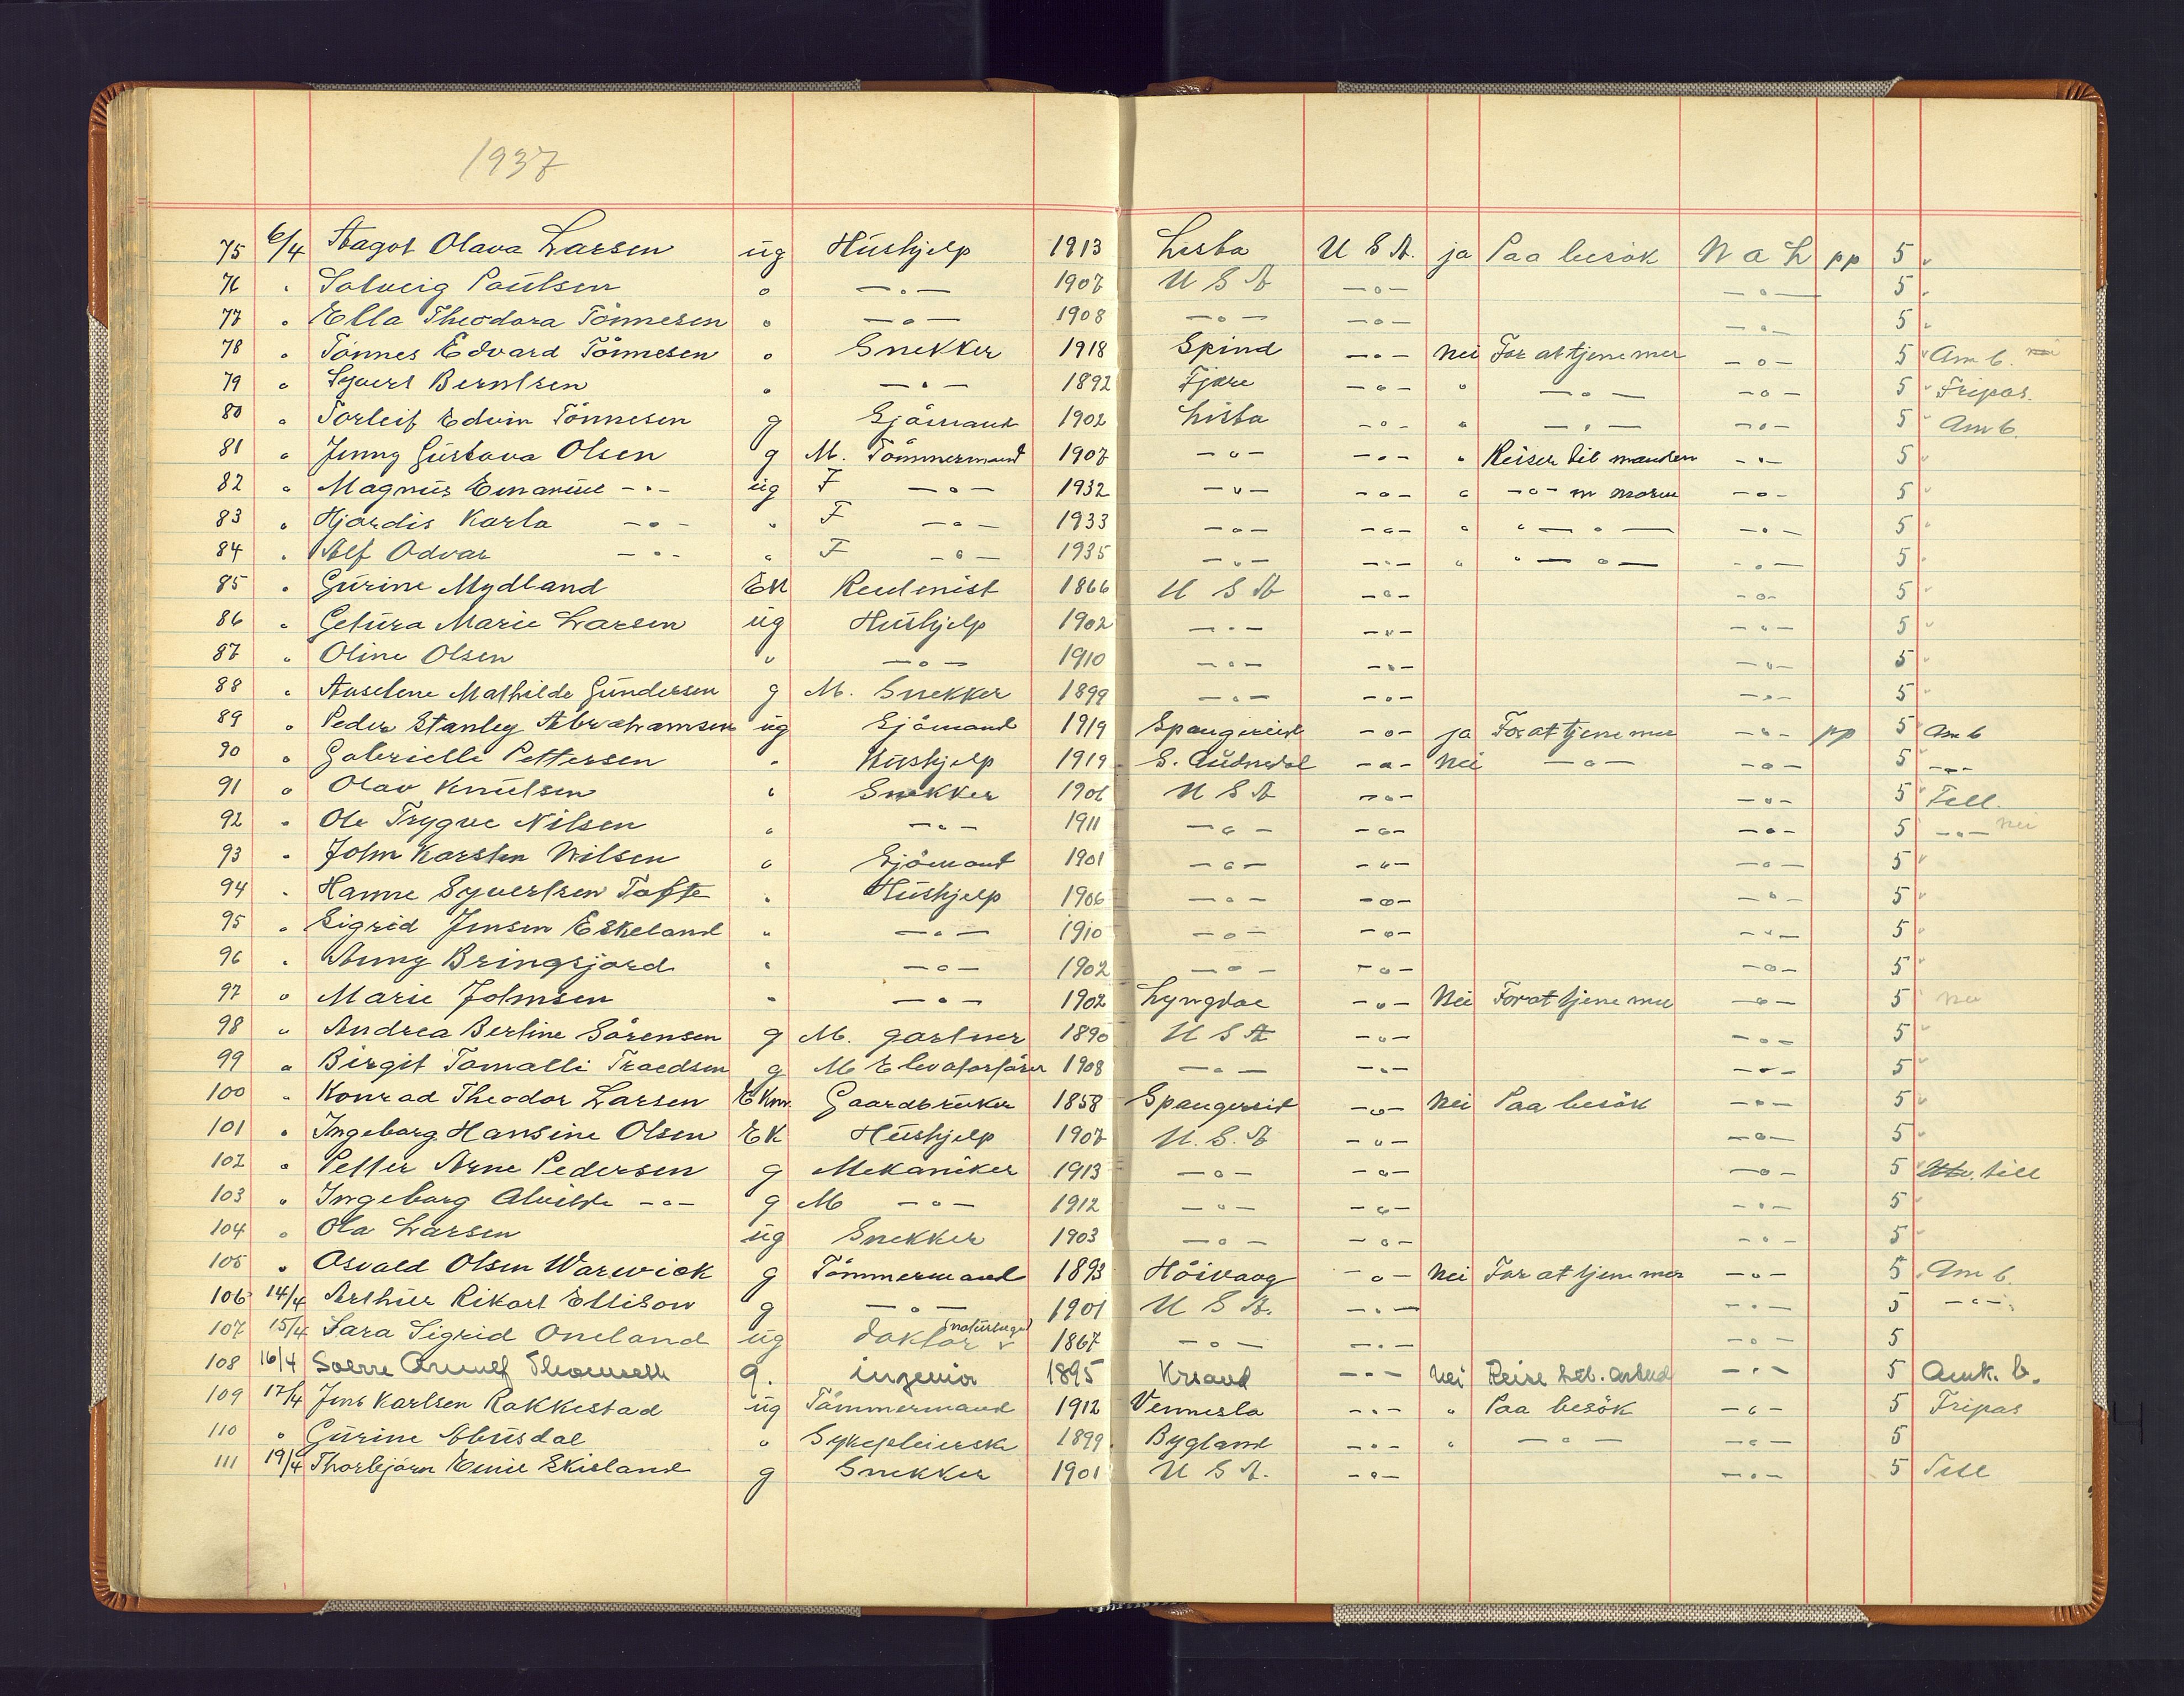 1937
75 6/4 Aagot Olava Larsen ug Hushjelp 1913 Lista U S A. ja Paa besök N a L pp 5
76 " Solveig Paulsen " —"— 1907 U S A —"— —"— 5
77 " Ella Theodora Tönnesen " —"— 1908 —"— —"— —"— 5
78 " Tönnes Edvard Tönnesen " Snekker 1918 Spind —"— Nei For at tjene mer —"— 5 Am b. nei
79 " Syvert Berntsen " —"— 1892 Fjære —"— " —"— —"— 5 Fripas.
80 " Torleif Edvin Tönnesen g Sjömand 1902 Lista —"— " —"— —"— 5 Am b.
81 " Jenny Gustava Olsen g M. Tömmermand 1907 —"— —"— " Reiser til manden —"— 5
82 " Magnus Emanuel —"— ug F —"— 1932 —"— —"— " —"— m moren —"— 5
83 " Hjördis Karla —"— " F —"— 1933 —"— —"— " " —"— —"— 5
84 " Alf Odvar —"— " F —"— 1935 —"— —"— " " —"— —"— 5
85 " Gurine Mydland EK 1866 U S A —"— —"— 5
86 " Getura Marie Larsen ug Hushjelp 1902 —"— —"— —"— 5
87 " Oline Olsen " —"— 1910 —"— —"— —"— 5
88 " Anselene Mathilde Gundersen g M. Snekker 1899 —"— —"— —"— 5
89 " Peder Stanley Abrahamsen ug Sjömand 1919 Spangereid —"— ja For at tjene mer —"— pp 5 Am b
90 " Gabrielle Pettersen " Hushjelp 1919 S. Audnedal —"— Nei —"— —"— 5 —"—
91 " Olav Knutsen " Snekker 1906 U S A —"— —"— 5 Till.
92 " Ole Trygve Nilsen " —"— 1911 —"— —"— —"— 5 —"— nei
93 " John Karsten Nilsen " Sjömand 1901 —"— —"— —"— 5
94 " Hanne Syvertsen Tofte " Hushjelp 1906 —"— —"— —"— 5
95 " Sigrid Jensen Eskeland " —"— 1910 —"— —"— —"— 5
96 " Anny Bringsjord " —"— 1902 —"— —"— —"— 5
97 " Marie Johnsen " —"— 1902 Lyngdal —"— Nei For at tjene mer —"— 5 nei
98 " Andrea Bertine Sörensen g M. gartner 1890 U S A —"— —"— 5
99 " Birgit Tomalli Traedsen g M Elevatorförer 1908 —"— —"— —"— 5
100 " Konrad Theodor Larsen EKm. Gaardbruker 1858 Spangereid —"— Nei Paa besök —"— 5
101 " Ingeborg Hansine Olsen EK Hushjelp 1907 U. S. A —"— —"— 5
102 " Petter Arne Pedersen g Mekaniker 1913 —"— —"— —"— 5 till
103 " Ingeborg Alvilde —"— g M —"— 1912 —"— —"— —"— 5
104 " Ola Larsen ug Snekker 1903 —"— —"— —"— 5
105 " Osvald Olsen Warwick g Tömmermand 1893 Höivaag —"— Nei For at tjene mer —"— 5 Am b.
106 14/4 Arthur Rikart Ellison g —"— 1901 U S A. —"— —"— 5 —"—
107 15/4 Sara Sigrid Oneland ug doktor 1867 —"— —"— —"— 5
108 16/4 g. ingeniör 1895 Krsand —"— Nei Reise —"— 5 Amk. b.
109 17/4 Jens Karlsen Rakkestad ug Tömmermand 1912 Vennesla —"— " Paa besök —"— 5 Fripas
110 " Gurine Abusdal " Sykepleierske 1899 Bygland —"— " —"— —"— 5
111 19/4 Thorbjörn Emil Skisland g Snekker 1901 U S A. —"— —"— 5 Till